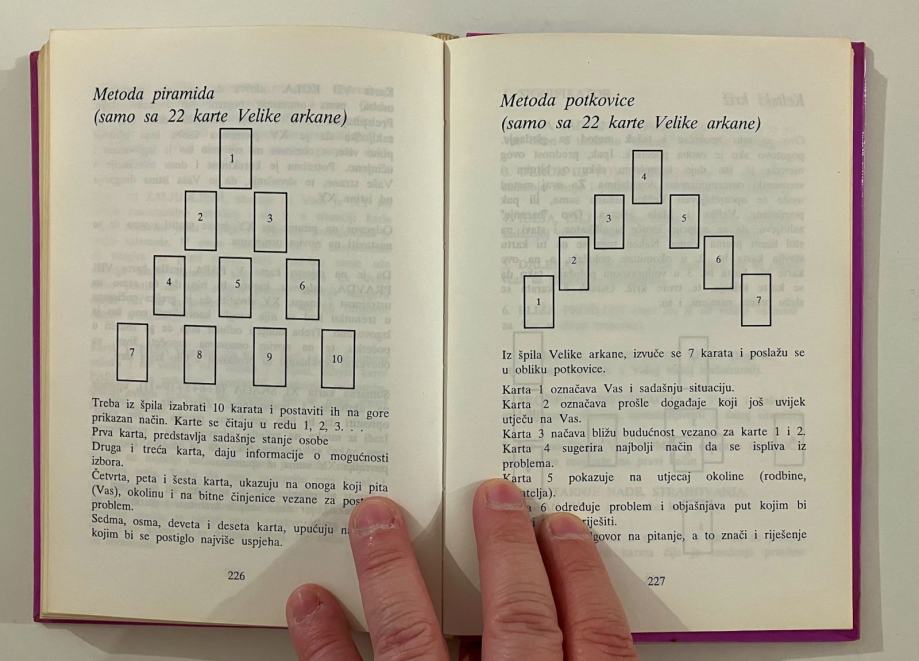 Metoda piramida
(samo sa 22 karte Velike arkane)
1
2 3
4 5 6
7 8 9 10
Treba iz špila izabrati 10 karata i postaviti ih na gore
prikazan način. Karte se čitaju u redu 1, 2, 3. . .
Prva karta, predstavlja sadašnje stanje osobe
Druga i treća karta, daju informacije o mogućnosti
izbora.
Četvrta, peta i šesta karta, ukazuju na onoga koji pita
(Vas), okolinu i na bitne činjenice vezane za
problem.
Sedma, osma, deveta i deseta karta, upućuju
kojim bi se postiglo najviše uspjeha.
226
Metoda potkovice
(samo sa 22 karte Velike arkane)
4
3 5
2 6
1 7
Iz špila Velike arkane, izvuče se 7 karata i poslažu se
u obliku potkovice.
Karta 1 označava Vas i sadašnju situaciju.
Karta 2 označava prošle događaje koji još uvijek
utječu na Vas.
Karta 3 načava bližu budućnost vezano za karte 1 i 2.
Karta 4 sugerira najbolji način da se ispliva iz
problema.
Karta 5 pokazuje na utjecaj okoline (rodbine,
6 određuje problem i objašnjava put kojim bi
riješiti.
na pitanje, a to znači i riješenje
227